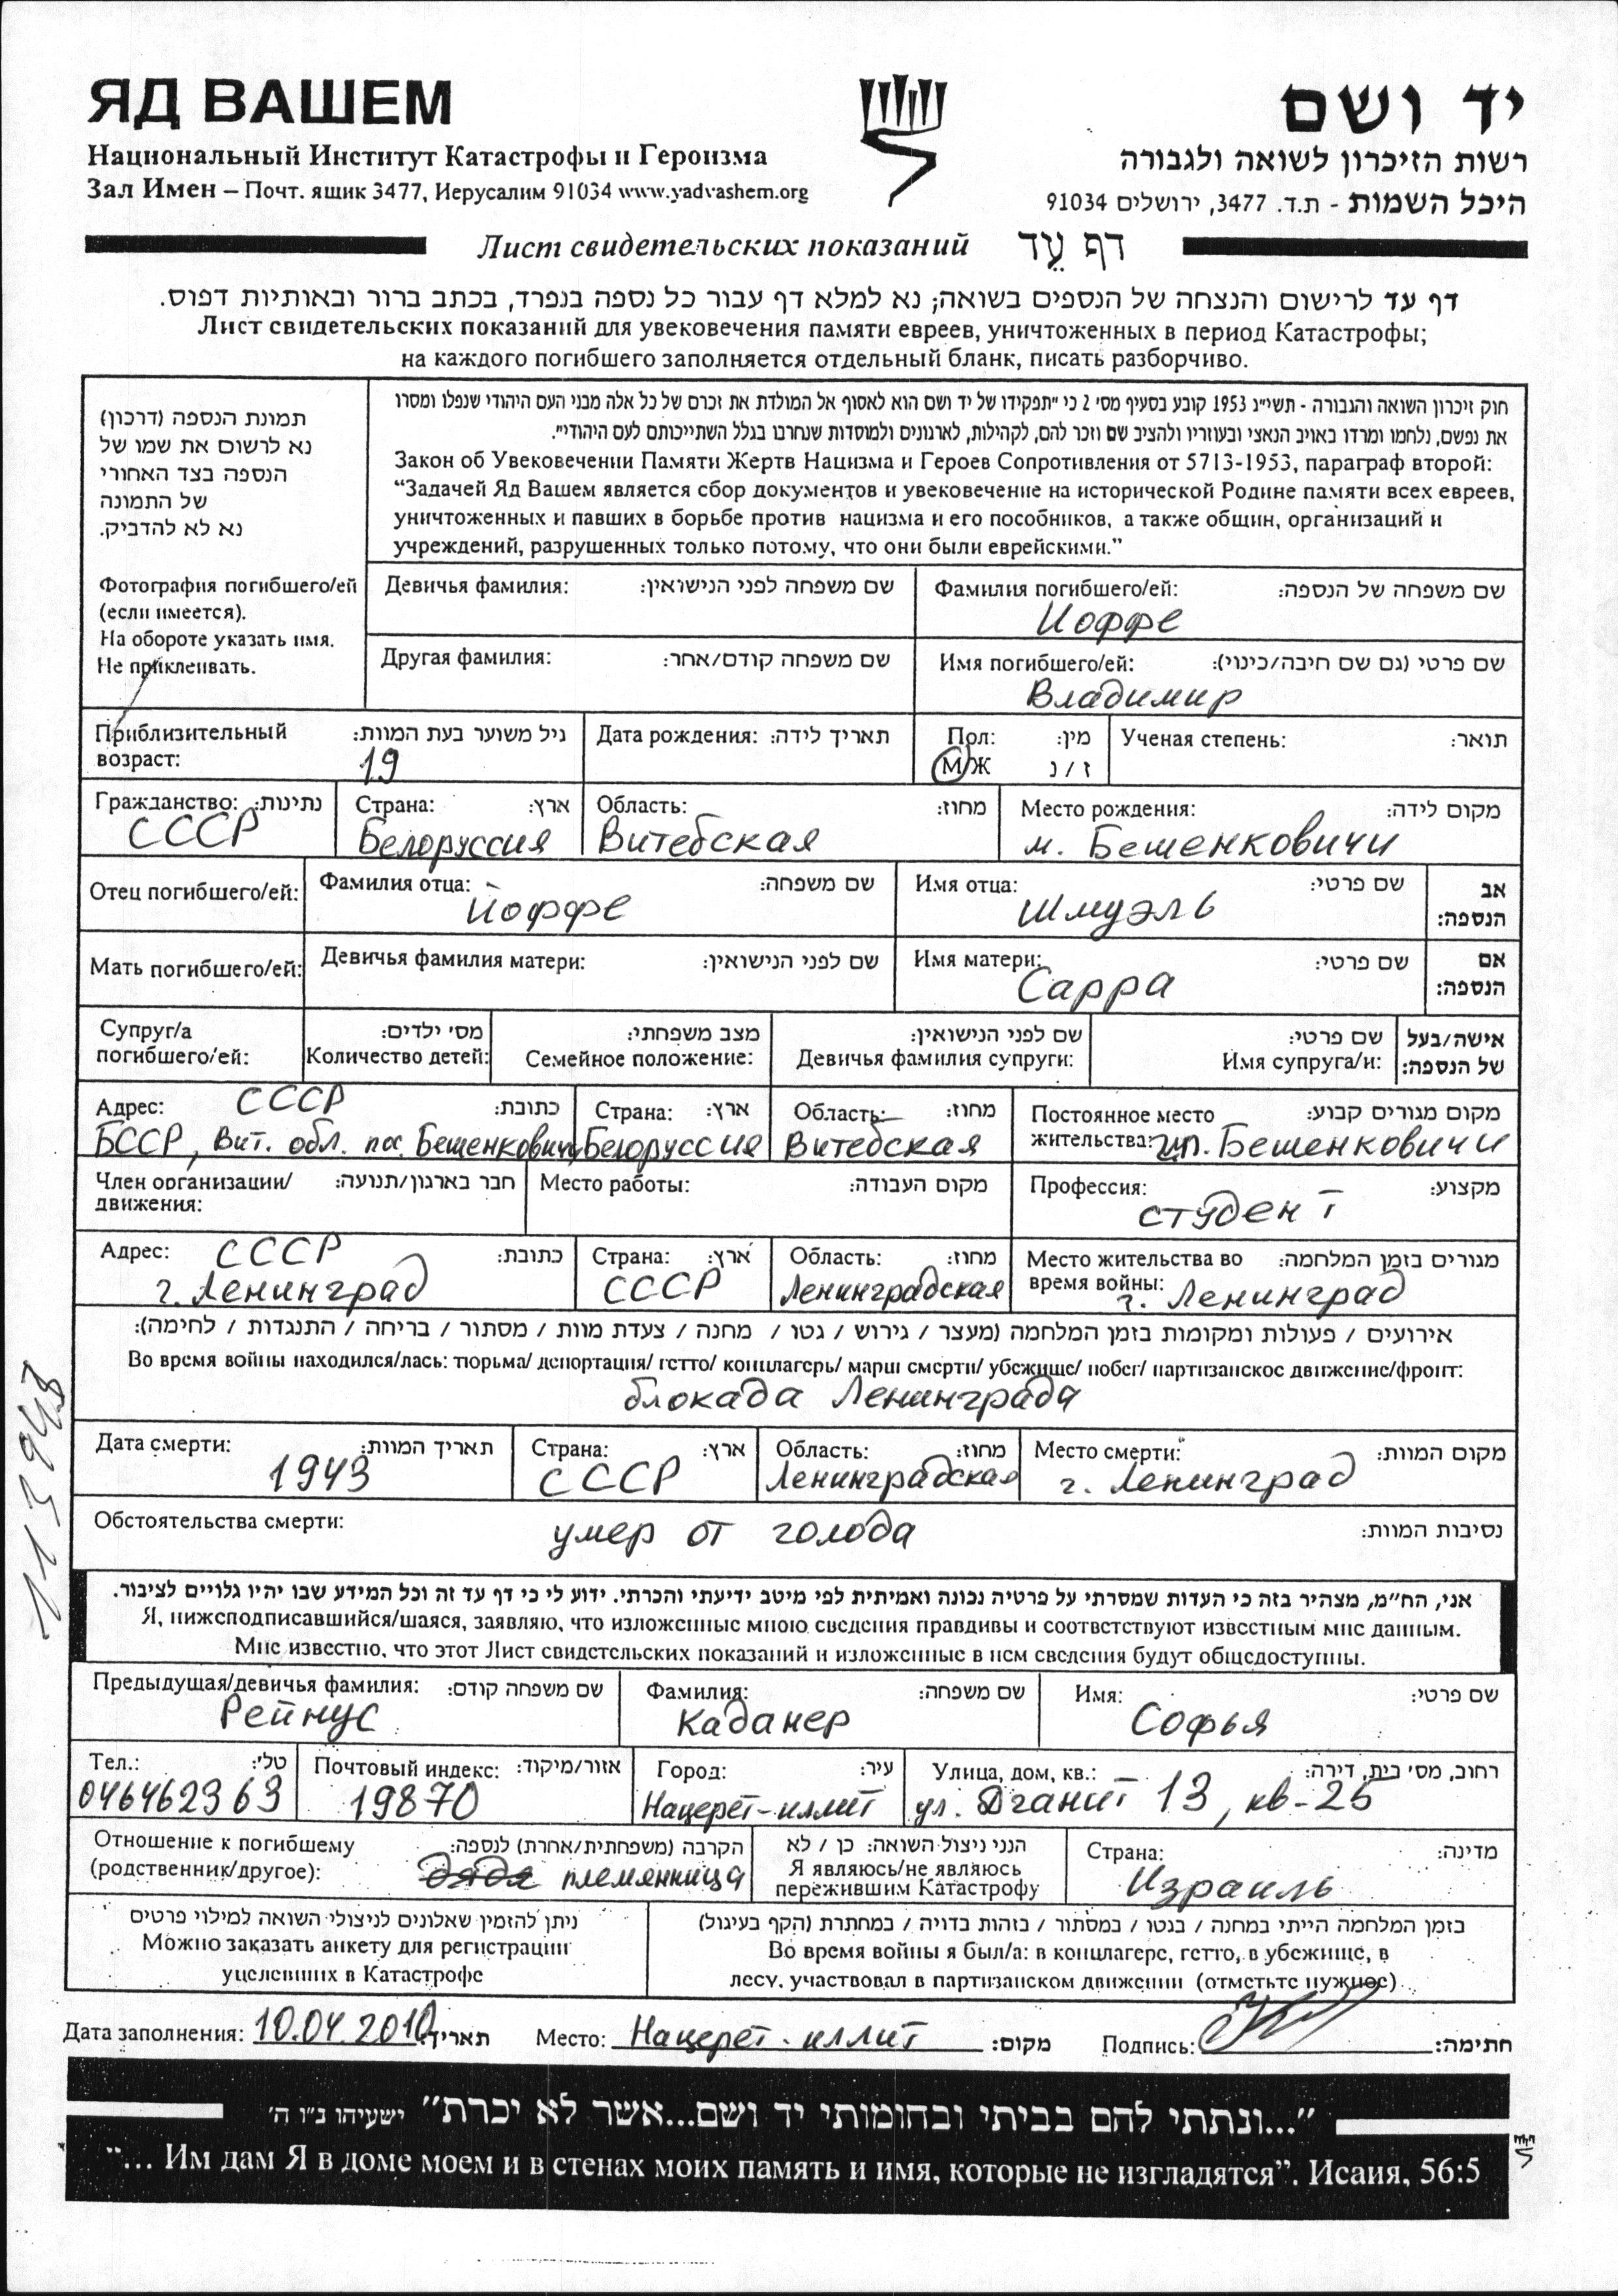 ЯД ВАШЕМ
יד ושם
Национальный Институт Катастрофы и Героизма
רשות הזיכרון לשואה ולגבורה
Зал Имен – Почт. ящик 3477, Иерусалим 91034 www.yadvashem.org
היכל השמות - ת.ד. 3477, ירושלים 91034
Лист свидетельских показаний דף עֵד
דף עד לרישום והנצחה של הנספים בשואה; נא למלא דף עבור כל נספה בנפרד, בכתב ברור ובאותיות דפוס.
Лист свидетельских показаний для увековечения памяти евреев, уничтоженных в период Катастрофы;
на каждого погибшего заполняется отдельный бланк, писать разборчиво.
תמונת הנספה (דרכון)
נא לרשום את שמו של
הנספה בצד האחורי
של התמונה
נא לא להדביק.
Фотография погибшего/ей
(если имеется).
На обороте указать имя.
Не приклеивать.
חוק זיכרון השואה והגבורה - תשי"ג 1953 קובע בסעיף מס' 2 כי "תפקידו של יד ושם הוא לאסוף אל המולדת את זכרם של כל אלה מבני העם היהודי שנפלו ומסרו
את נפשם, נלחמו ומרדו באויב הנאצי ובעוזריו ולהציב שם וזכר להם, לקהילות, לארגונים ולמוסדות שנחרבו בגלל השתייכותם לעם היהודי".
Закон об Увековечении Памяти Жертв Нацизма и Героев Сопротивления от 5713-1953, параграф второй:
“Задачей Яд Вашем является сбор документов и увековечение на исторической Родине памяти всех евреев,
уничтоженных и павших в борьбе против нацизма и его пособников, а также общин, организаций и
учреждений, разрушенных только потому, что они были еврейскими.”
Девичья фамилия: שם משפחה לפני הנישואין:
Фамилия погибшего/ей: שם משפחה של הנספה:
Иоффе
Другая фамилия: שם משפחה קודם/אחר:
Имя погибшего/ей: שם פרטי (גם שם חיבה/כינוי):
Владимир
Приблизительный возраст: גיל משוער בעת המוות:
19
Дата рождения: תאריך לידה:
Пол: מין:
М/Ж ז / נ
Ученая степень: תואר:
Гражданство: נתינות:
СССР
Страна: ארץ:
Белоруссия
Область: מחוז:
Витебская
Место рождения: מקום לידה:
м. Бешенковичи
Отец погибшего/ей:
Фамилия отца: שם משפחה:
Йоффе
Имя отца: שם פרטי:
Шмуэль
אב
הנספה:
Мать погибшего/ей:
Девичья фамилия матери: שם לפני הנישואין:
Имя матери: שם פרטי:
Сарра
אם
הנספה:
Супруг/а
погибшего/ей:
מס' ילדים:
Количество детей:
מצב משפחתי:
Семейное положение:
שם לפני הנישואין:
Девичья фамилия супруги:
שם פרטי:
Имя супруга/и:
אישה/בעל
של הנספה:
Адрес: כתובת:
СССР
БССР, Вит. обл. пос. Бешенковичи
Страна: ארץ:
Белоруссия
Область: מחוז:
Витебская
Постоянное место жительства: מקום מגורים קבוע:
г.п. Бешенковичи
Член организации/
движения: חבר בארגון/תנועה:
Место работы: מקום העבודה:
Профессия: מקצוע:
студент
Адрес: כתובת:
СССР
г. Ленинград
Страна: ארץ:
СССР
Область: מחוז:
Ленинградская
Место жительства во время войны: מגורים בזמן המלחמה:
г. Ленинград
אירועים / פעולות ומקומות בזמן המלחמה (מעצר / גירוש / גטו / מחנה / צעדת מוות / מסתור / בריחה / התנגדות / לחימה):
Во время войны находился/лась: тюрьма/ депортация/ гетто/ концлагерь/ марш смерти/ убежище/ побег/ партизанское движение/фронт:
блокада Ленинграда
Дата смерти: תאריך המוות:
1943
Страна: ארץ:
СССР
Область: מחוז:
Ленинградская
Место смерти: מקום המוות:
г. Ленинград
Обстоятельства смерти: נסיבות המוות:
умер от голода
113948
אני, הח"מ, מצהיר בזה כי העדות שמסרתי על פרטיה נכונה ואמיתית לפי מיטב ידיעתי והכרתי. ידוע לי כי דף עד זה וכל המידע שבו יהיו גלויים לציבור.
Я, нижеподписавшийся/шаяся, заявляю, что изложенные мною сведения правдивы и соответствуют известным мне данным.
Мне известно, что этот Лист свидетельских показаний и изложенные в нем сведения будут общедоступны.
Предыдущая/девичья фамилия: שם משפחה קודם:
Рейнус
Фамилия: שם משפחה:
Каданер
Имя: שם פרטי:
Софья
Тел.: טל':
046462363
Почтовый индекс: אזור/מיקוד:
19870
Город: עיר:
Нацерет-иллит
Улица, дом, кв.: רחוב, מס' בית, דירה:
ул. Дганит 13, кв-26
Отношение к погибшему
(родственник/другое): הקרבה (משפחתית/אחרת) לנספה:
дядя племянница
הנני ניצול השואה: כן / לא
Я являюсь/не являюсь
пережившим Катастрофу
Страна: מדינה:
Израиль
ניתן להזמין שאלונים לניצולי השואה למילוי פרטים
Можно заказать анкету для регистрации
уцелевших в Катастрофе
בזמן המלחמה הייתי במחנה / בגטו / במסתור / בזהות בדויה / במחתרת (הקף בעיגול)
Во время войны я был/а: в концлагере, гетто, в убежище, в
лесу, участвовал в партизанском движении (отметьте нужное)
Дата заполнения: 10.04.2010 תאריך: Место: Нацерет-иллит מקום: Подпись: חתימה:
"...ונתתי להם בביתי ובחומותי יד ושם...אשר לא יכרת" ישעיהו נ"ו ה'
"... Им дам Я в доме моем и в стенах моих память и имя, которые не изгладятся”. Исаия, 56:5